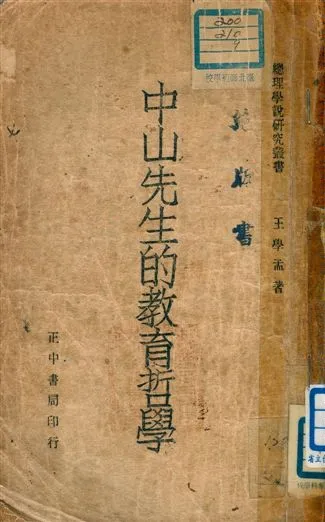 總理學說研究叢書
王學孟著
絕版書
中山先生的教育哲學
正中書局印行
200
210